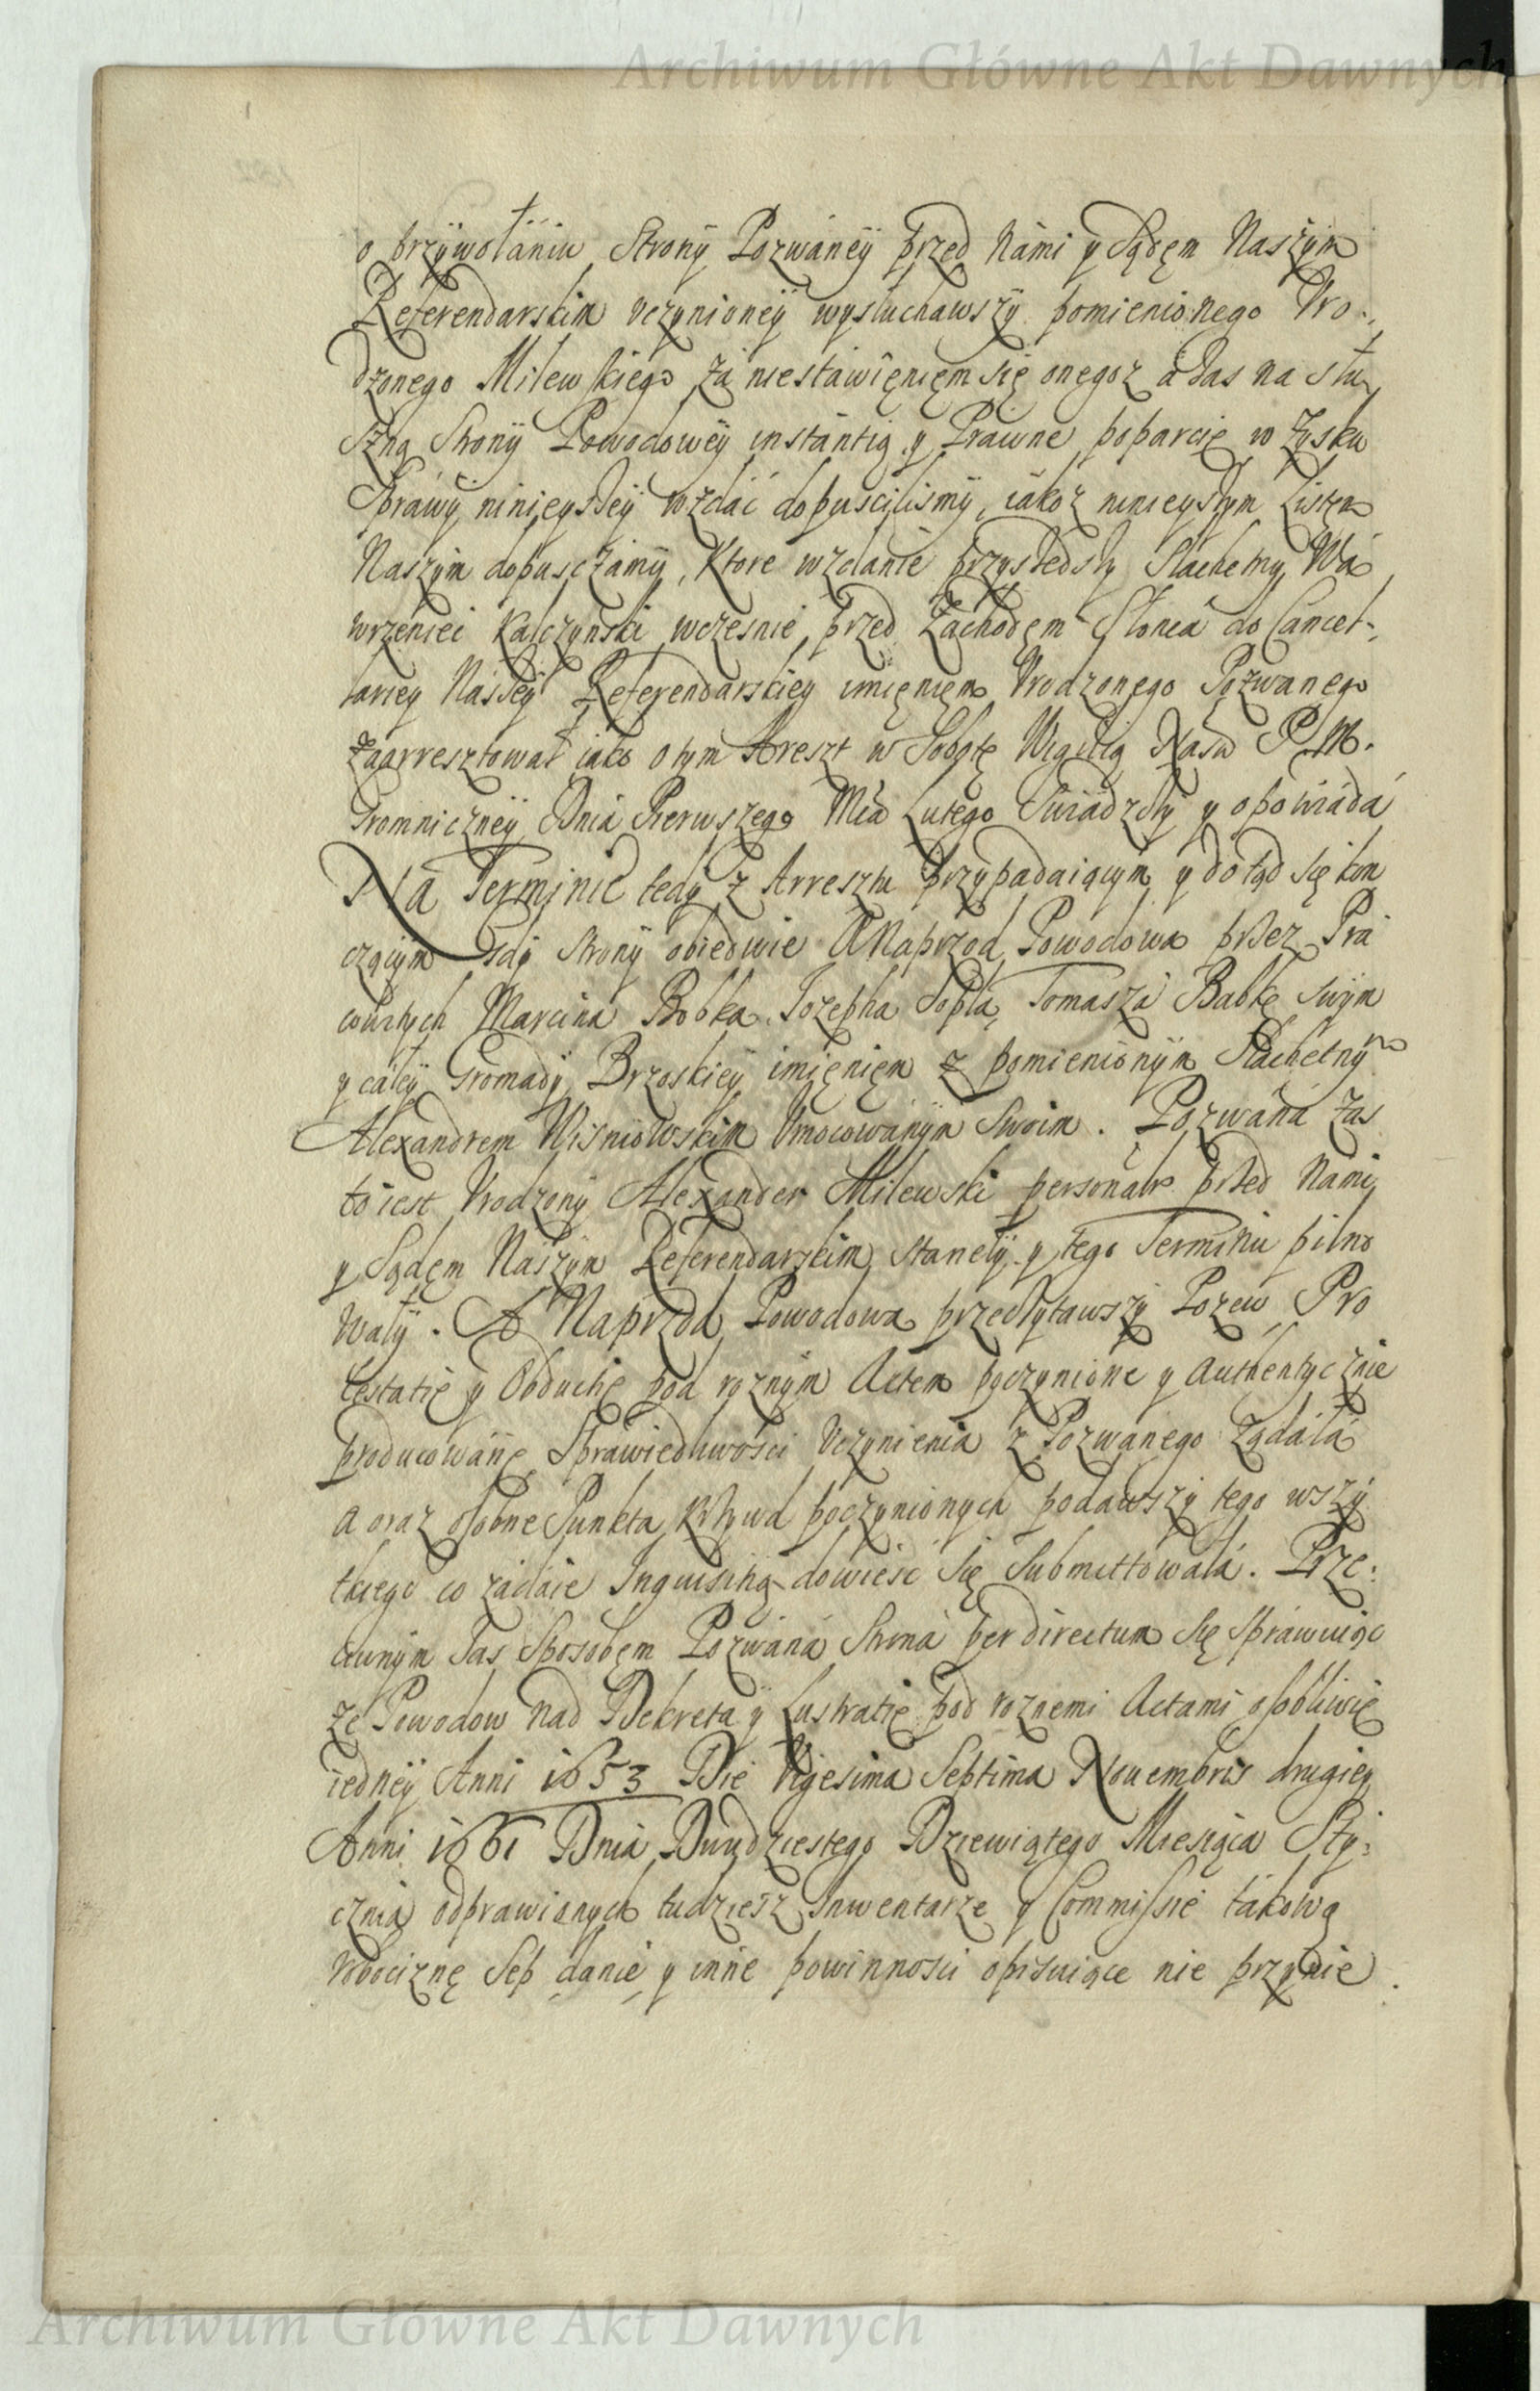 Archiwum Główne Akt Dawnych
o przÿwołániu Stronÿ Pozwáneÿ przed Námi y Sądęm Naszÿm
Referendarskim vczynioneÿ wysłuchawszÿ pomienionego Vro-
dzonego Milewskiego zá niestáwięnięm się onegoz á zas na słu
szną Stronÿ Powodoweÿ instántią y Práwne poparcię w zysku
Spráwÿ ninięyszeÿ wzdáć dopuscilismÿ, iákoz ninieyszym Listem
Naszÿm dopusczámÿ, Ktore wzdánie przyszedszy Slachetny Wá
wrzeniec Kalczynski wczesnie, przed Zachodęm Słoncá do Cancel-
lariey Nászeÿ Referendarskiey imięnięm Vrodzonego Pozwanego
zaarresztował jáko o tym Areszt w Sobotę Wigilią Nasw P. M.
Gromniczneÿ Dniá Pierwszego Mcá Lutego Swiádzsÿ y opowiádá
Ná Terminie tedy z Arresztu przypadaiącym y dotąd się kon
czącym gdy Stronÿ obiedwie A Naprzod Powodowa przez Prá
cowitych Marcina Bobka Jozepha Soplá, Tomaszá Babkę Swÿm
y cáłeÿ Gromadÿ Brzoskieÿ imięnięm z pomienionÿm Slachetnÿm
Alexandrem Wisniowskim Vmocowánÿm Swoim. Pozwáná zas
to iest Vrodzony Alexander Milewski personalr przed Námi
y Sądęm Nászÿm Referendarskim stanełÿ y tego Terminu pilno
wałÿ. A Naprzod Powodowa przeczytawszÿ Pozew Pro
testatie y Obductie pod roznÿm Actem poczynione y Authentycznie
producowáne Spráwiedliwosci Vczynienia z Pozwánego Ządáłá
a oraz osobne Punkta Krzywd poczynionych podawszÿ tego wszÿ
tkiego co zádáie Inquisitią dowiesć się Submittowałá. Prze-
ciwnÿm zas Sposobęm Pozwáná Stroná per directum się Spráwuiąc
ze Powodow nad Dekreta ÿ Lustratie pod roznemi Actami osobliwie
iedneÿ Anni 1653 Die Vigesima Septima Nouembris drugiey
Anni 1661 Dniá Dwudziestego Dziewiątego Miesiącá Sty-
czniá odprawionych tudziesz Inwentarze y Commissie tákową
robociznę Sep danie y inne powinnosci opisuiące nie przynie
Archiwum Główne Akt Dawnych